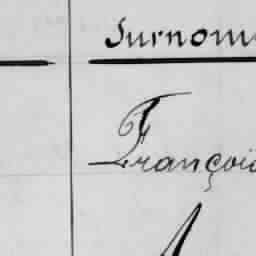 Surnom
Françoi